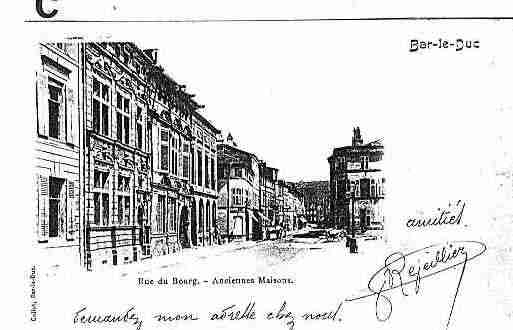 C
Bar-le-Duc
amitiés
Rejeillier
Rue du Bourg. - Anciennes Maisons.
Demandez mon adresse chez nous.
Collot, Bar-le-Duc.